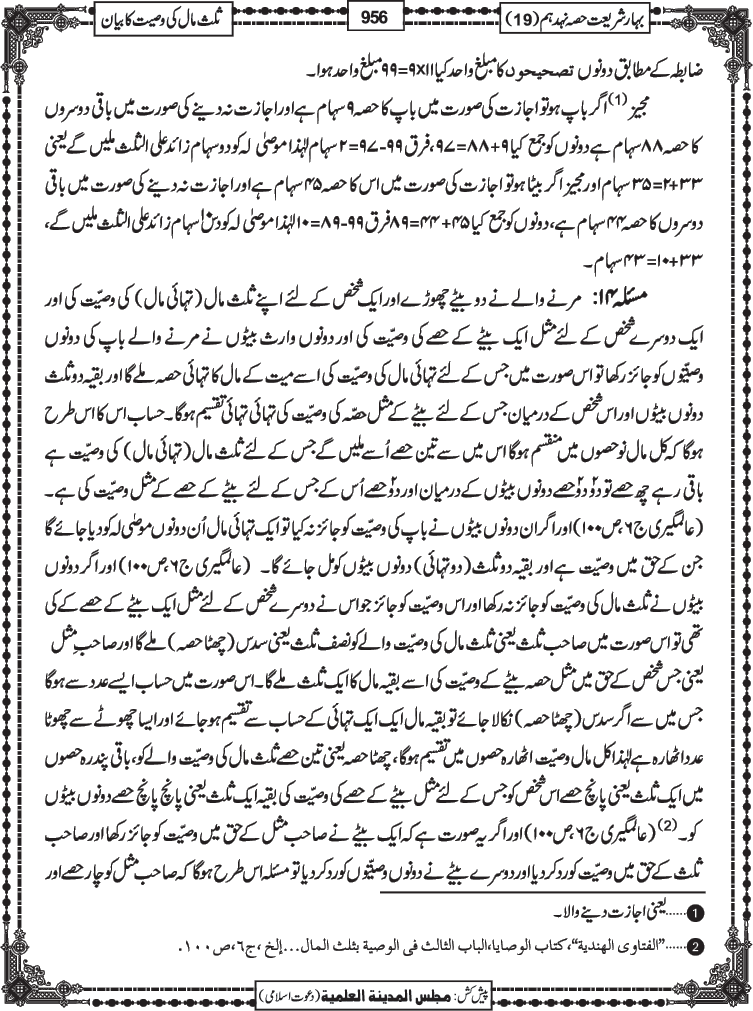 بہارِشریعت حصہ نہدہم (19)
956
ثلث مال کی وصیت کا بیان
ضابطہ کے مطابق دونوں تصحیحوں کا مبلغ واحد کیا ۱۱×۹=۹۹ مبلغ واحد ہوا۔
مجیز (1) اگر باپ ہو تو اجازت کی صورت میں باپ کا حصہ ۹ سہام ہے اور اجازت نہ دینے کی صورت میں باقی دوسروں
کا حصہ ۸۸ سہام ہے دونوں کو جمع کیا ۹+۸۸=۹۷، فرق ۹۹-۹۷=۲ سہام لہٰذا موصٰی لہ کو دو سہام زائد علی الثلث ملیں گے یعنی
۳۳+۲=۳۵ سہام اور مجیز اگر بیٹا ہو تو اجازت کی صورت میں اس کا حصہ ۴۵ سہام ہے اور اجازت نہ دینے کی صورت میں باقی
دوسروں کا حصہ ۴۴ سہام ہے، دونوں کو جمع کیا ۴۵+۴۴=۸۹ فرق ۹۹-۸۹=۱۰ لہٰذا موصٰی لہ کو دس۱۰ سہام زائد علی الثلث ملیں گے،
۳۳+۱۰=۴۳ سہام۔
مسئلہ ۱۴: مرنے والے نے دو بیٹے چھوڑے اور ایک شخص کے لئے اپنے ثلث مال (تہائی مال) کی وصیّت کی اور
ایک دوسرے شخص کے لئے مثل ایک بیٹے کے حصے کی وصیّت کی اور دونوں وارث بیٹوں نے مرنے والے باپ کی دونوں
وصیّتوں کو جائز رکھا تو اس صورت میں جس کے لئے تہائی مال کی وصیّت کی اسے میت کے مال کا تہائی حصہ ملے گا اور بقیہ دو ثلث
دونوں بیٹوں اور اس شخص کے درمیان جس کے لئے بیٹے کے مثل حصّہ کی وصیّت کی تہائی تہائی تقسیم ہوگا۔ حساب اس کا اس طرح
ہوگا کہ کل مال نو حصوں میں منقسم ہوگا اس میں سے تین حصے اُسے ملیں گے جس کے لئے ثلث مال (تہائی مال) کی وصیّت ہے
باقی رہے چھ حصے تو دو۲ دو۲ حصے دونوں بیٹوں کے درمیان اور دو۲ حصے اُس کے جس کے لئے بیٹے کے حصے کے مثل وصیّت کی ہے۔
(عالمگیری ج۶، ص۱۰۰) اور اگر ان دونوں بیٹوں نے باپ کی وصیّت کو جائز نہ کیا تو ایک تہائی مال اُن دونوں موصٰی لہ کو دیا جائے گا
جن کے حق میں وصیّت ہے اور بقیہ دو ثلث (دو تہائی) دونوں بیٹوں کو مل جائے گا۔ (عالمگیری ج۶، ص۱۰۰) اور اگر دونوں
بیٹوں نے ثلث مال کی وصیّت کو جائز نہ رکھا اور اس وصیّت کو جائز جو اس نے دوسرے شخص کے لئے مثل ایک بیٹے کے حصے کے کی
تھی تو اس صورت میں صاحب ثلث یعنی ثلث مال کی وصیّت والے کو نصف ثلث یعنی سدس (چھٹا حصہ) ملے گا اور صاحبِ مثل
یعنی جس شخص کے حق میں مثل حصہ بیٹے کے وصیّت کی اسے بقیہ مال کا ایک ثلث ملے گا۔ اس صورت میں حساب ایسے عدد سے ہوگا
جس میں سے اگر سدس (چھٹا حصہ) نکالا جائے تو بقیہ مال ایک ایک تہائی کے حساب سے تقسیم ہو جائے اور ایسا چھوٹے سے چھوٹا
عدد اٹھارہ ہے لہٰذا کل مال وصیّت اٹھارہ حصوں میں تقسیم ہوگا، چھٹا حصہ یعنی تین حصے ثلث مال کی وصیّت والے کو، باقی پندرہ حصوں
میں ایک ثلث یعنی پانچ حصے اس شخص کو جس کے لئے مثل بیٹے کے حصے کی وصیّت کی بقیہ ایک ثلث یعنی پانچ پانچ حصے دونوں بیٹوں
کو۔ (2) (عالمگیری ج۶، ص۱۰۰) اور اگر یہ صورت ہے کہ ایک بیٹے نے صاحب مثل کے حق میں وصیّت کو جائز رکھا اور صاحب
ثلث کے حق میں وصیّت کو رد کر دیا اور دوسرے بیٹے نے دونوں وصیّتوں کو رد کر دیا تو مسئلہ اس طرح ہوگا کہ صاحب مثل کو چار حصے اور
1 ......یعنی اجازت دینے والا۔
2 ......"الفتاوی الهندية"، كتاب الوصايا، الباب الثالث فى الوصية بثلث المال...إلخ، ج٦، ص١٠٠.
پیش کش: مجلس المدینة العلمیة (دعوت اسلامی)